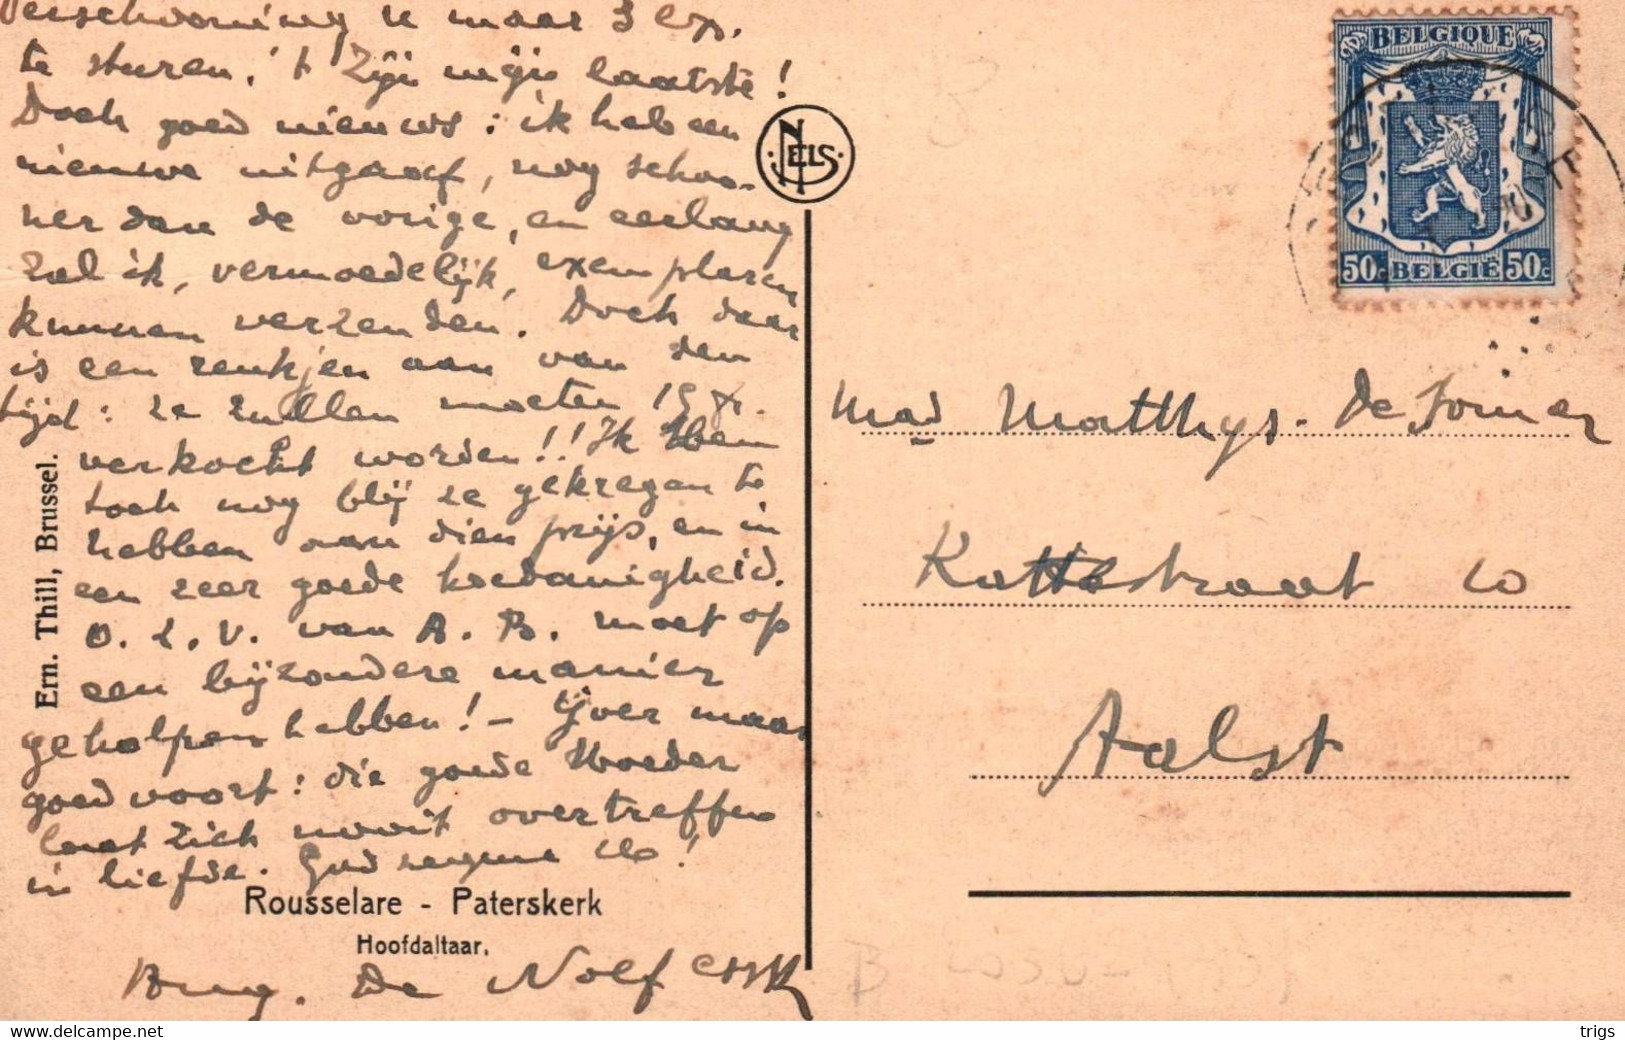 Verschooning u maar 3 ex.
te sturen. 't Zijn mijn laatste!
Doch goed nieuws: ik heb een
nieuwe uitgaaf, nog schoo-
ner dan de vorige, en eerlang
zal ik, vermoedelijk, exemplaren
kunnen verzenden. Doch daar
is een reukjen aan van den
tijd: ze zullen moeten 15 fr.
verkocht worden!! Ik ben
toch nog blij ze gekregen te
hebben aan dien prijs, en in
een zeer goede hoedanigheid.
O. L. V. van B. B. moet op
een bijzondere manier
geholpen hebben! - Ijver maar
goed voort: die goede Moeder
laat zich nooit overtreffen
in liefde. God zegene U!
Rousselare - Paterskerk
Hoofdaltaar.
De Nolf
Ern. Thill, Brussel.
NELS
BELGIQUE
50c BELGIË 50c
Mad Matthys-De
Kattestraat 10
Aalst
www.delcampe.net
trigs